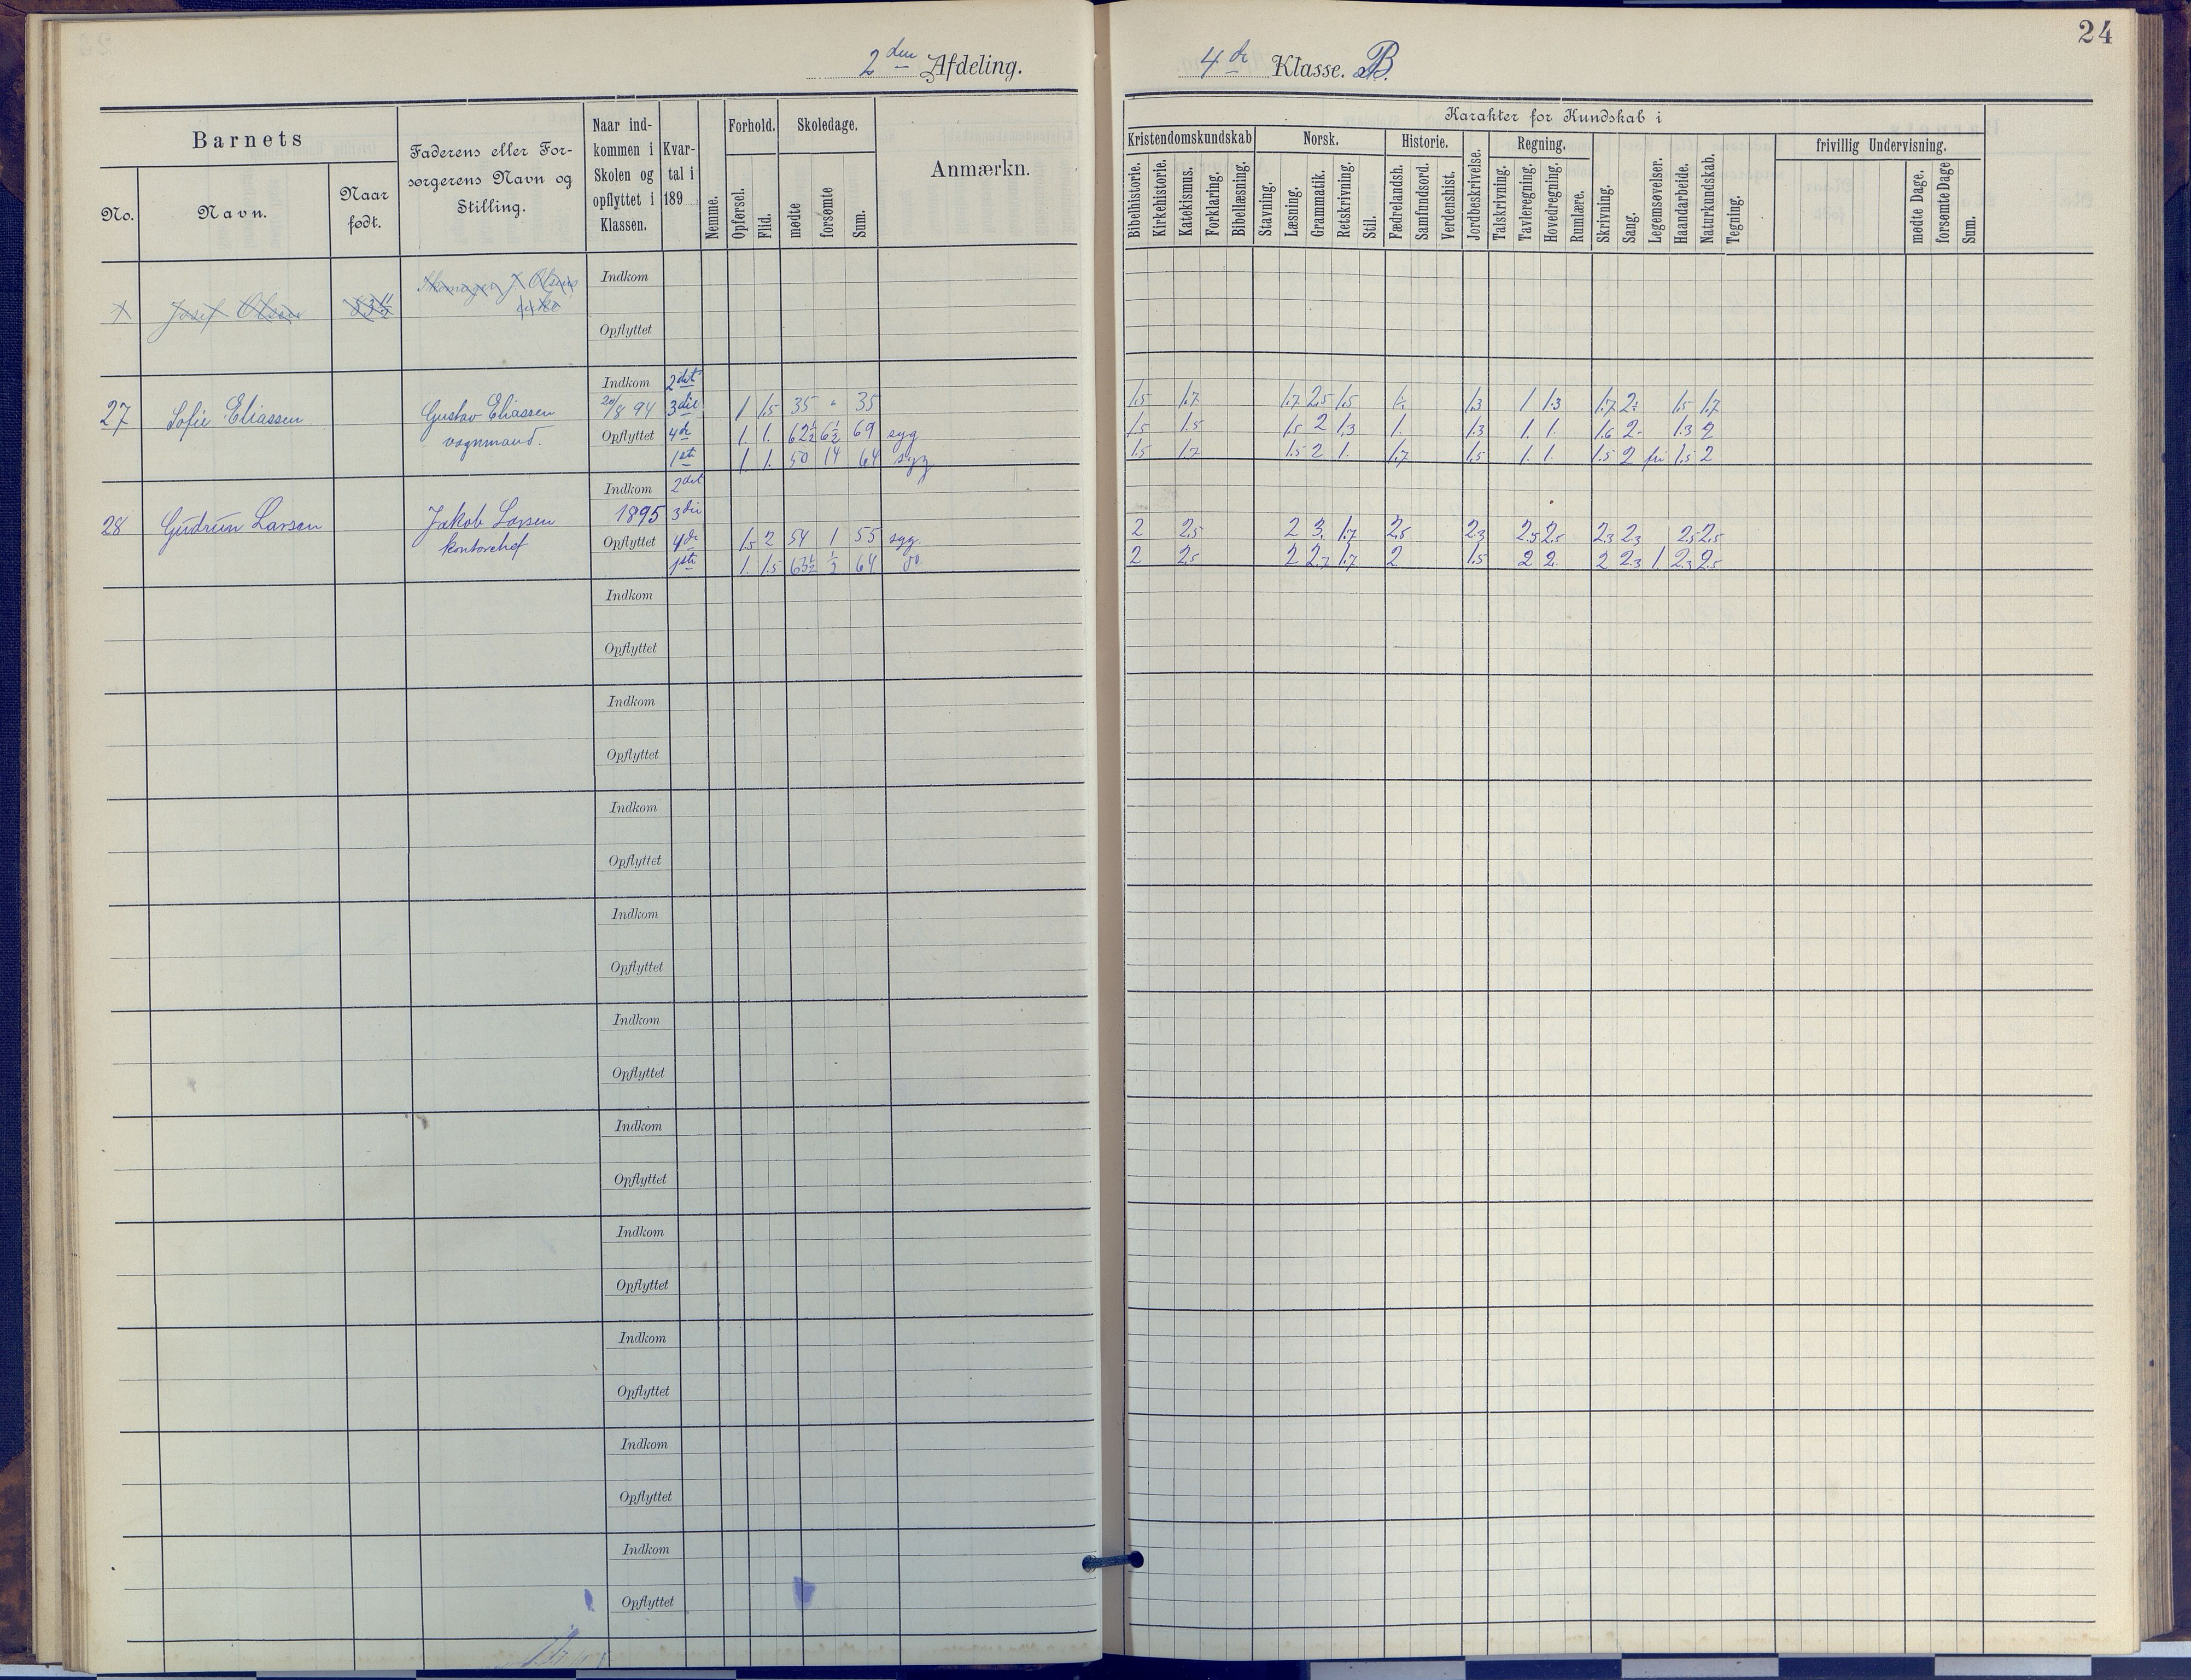 2den Afdeling.
Barnets
No.
Navn.
Naar født.
Faderens eller Forsørgerens Navn og Stilling.
Naar indkommen i Skolen og opflyttet i Klassen.
Kvartal i 189
Nemme.
Forhold.
Opførsel.
Flid.
Skoledage.
mødte
forsømte
Sum.
Anmærkn.
Josef Olsen
Skomager J. Olsens
enke
Indkom
Opflyttet
27 Sofie Eliassen
Gustav Eliassen
vognmand.
Indkom 2det
20/8 94 3die 1 1.5 35 " 35
Opflyttet 4de 1. 1. 62½ 6½ 69 syg
1ste 1. 1. 50 14 64 syg
28 Gudrun Larsen
Jakob Larsen
kontorchef
Indkom 2det
1895 3die
Opflyttet 4de 1.5 2 54 1 55 syg.
1ste 1. 1.5 63½ ½ 64 do
Indkom
Opflyttet
Indkom
Opflyttet
Indkom
Opflyttet
Indkom
Opflyttet
Indkom
Opflyttet
Indkom
Opflyttet
Indkom
Opflyttet
Indkom
Opflyttet
Indkom
Opflyttet
Indkom
Opflyttet
24
4de Klasse. B.
Karakter for Kundskab i
Kristendomskundskab
Bibelhistorie.
Kirkehistorie.
Katekismus.
Forklaring.
Bibellæsning.
Norsk.
Stavning.
Læsning.
Grammatik.
Retskrivning.
Stil.
Historie.
Fædrelandsh.
Samfundsord.
Verdenshist.
Jordbeskrivelse.
Regning.
Talskrivning.
Tavleregning.
Hovedregning.
Rumlære.
Skrivning.
Sang.
Legemsøvelser.
Haandarbeide.
Naturkundskab.
Tegning.
frivillig Undervisning.
mødte Dage.
forsømte Dage
Sum.
1.5 1.7 1.7 2.5 1.5 1. 1.3 1 1.3 1.7 2. 1.5 1.7
1.5 1.5 1.5 2 1.3 1. 1.3 1. 1. 1.6 2- 1.3 2
1.5 1.7 1.5 2 1. 1.7 1.5 1. 1. 1.5 2 fri 1.5 2
2 2.5 2 3. 1.7 2.5 2.3 2.5 2.5 2.3 2.3 2.5 2.5
2 2.5 2 2.7 1.7 2 1.5 2 2. 2 2.3 1 2.3 2.5